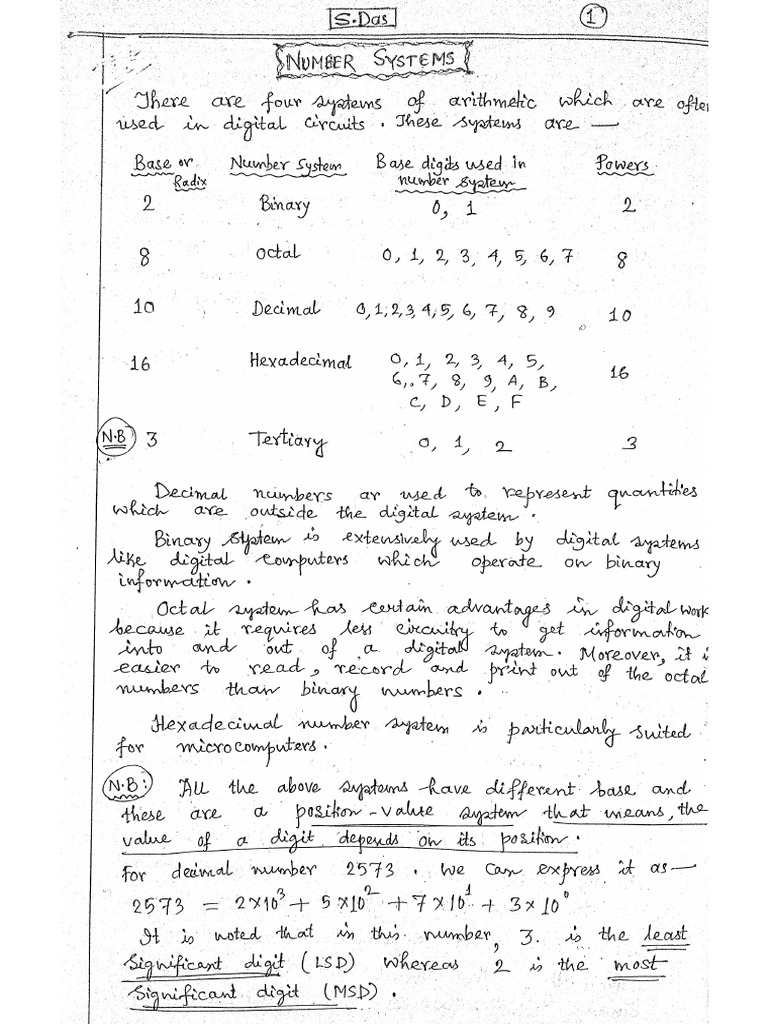 S.Das
1
NUMBER SYSTEMS
There are four systems of arithmetic which are often
used in digital circuits. These systems are —
Base or Radix Number System Base digits used in number system Powers
2 Binary 0, 1 2
8 Octal 0, 1, 2, 3, 4, 5, 6, 7 8
10 Decimal 0,1,2,3,4,5, 6, 7, 8, 9 10
16 Hexadecimal 0, 1, 2, 3, 4, 5,
6, 7, 8, 9, A, B, 16
C, D, E, F
N.B 3 Tertiary 0, 1, 2 3
Decimal numbers ar used to represent quantities
which are outside the digital system.
Binary system is extensively used by digital systems
like digital computers which operate on binary
information.
Octal system has certain advantages in digital work
because it requires less circuitry to get information
into and out of a digital system. Moreover, it i
easier to read, record and print out of the octal
numbers than binary numbers.
Hexadecimal number system is particularly suited
for microcomputers.
N.B: All the above systems have different base and
these are a position-value system that means, the
value of a digit depends on its position.
For decimal number 2573. We can express it as—
2573 = 2×10³ + 5×10² + 7×10¹ + 3×10⁰
It is noted that in this number, 3. is the least
significant digit (LSD) whereas 2 is the most
significant digit (MSD).